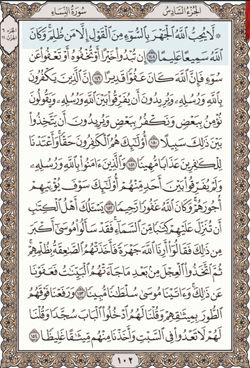 الجزء السادس سورة النساء
لَّا يُحِبُّ ٱللَّهُ ٱلْجَهْرَ بِٱلسُّوٓءِ مِنَ ٱلْقَوْلِ إِلَّا مَن ظُلِمَ وَكَانَ
ٱللَّهُ سَمِيعًا عَلِيمًا ١٤٨ إِن تُبْدُوا۟ خَيْرًا أَوْ تُخْفُوهُ أَوْ تَعْفُوا۟ عَن
سُوٓءٍ فَإِنَّ ٱللَّهَ كَانَ عَفُوًّا قَدِيرًا ١٤٩ إِنَّ ٱلَّذِينَ يَكْفُرُونَ
بِٱللَّهِ وَرُسُلِهِۦ وَيُرِيدُونَ أَن يُفَرِّقُوا۟ بَيْنَ ٱللَّهِ وَرُسُلِهِۦ وَيَقُولُونَ
نُؤْمِنُ بِبَعْضٍ وَنَكْفُرُ بِبَعْضٍ وَيُرِيدُونَ أَن يَتَّخِذُوا۟
بَيْنَ ذَٰلِكَ سَبِيلًا ١٥٠ أُو۟لَٰٓئِكَ هُمُ ٱلْكَٰفِرُونَ حَقًّا وَأَعْتَدْنَا
لِلْكَٰفِرِينَ عَذَابًا مُّهِينًا ١٥١ وَٱلَّذِينَ ءَامَنُوا۟ بِٱللَّهِ وَرُسُلِهِۦ
وَلَمْ يُفَرِّقُوا۟ بَيْنَ أَحَدٍ مِّنْهُمْ أُو۟لَٰٓئِكَ سَوْفَ يُؤْتِيهِمْ
أُجُورَهُمْ وَكَانَ ٱللَّهُ غَفُورًا رَّحِيمًا ١٥٢ يَسْـَٔلُكَ أَهْلُ ٱلْكِتَٰبِ
أَن تُنَزِّلَ عَلَيْهِمْ كِتَٰبًا مِّنَ ٱلسَّمَآءِ فَقَدْ سَأَلُوا۟ مُوسَىٰٓ أَكْبَرَ
مِن ذَٰلِكَ فَقَالُوٓا۟ أَرِنَا ٱللَّهَ جَهْرَةً فَأَخَذَتْهُمُ ٱلصَّٰعِقَةُ بِظُلْمِهِمْ
ثُمَّ ٱتَّخَذُوا۟ ٱلْعِجْلَ مِنۢ بَعْدِ مَا جَآءَتْهُمُ ٱلْبَيِّنَٰتُ فَعَفَوْنَا
عَن ذَٰلِكَ وَءَاتَيْنَا مُوسَىٰ سُلْطَٰنًا مُّبِينًا ١٥٣ وَرَفَعْنَا فَوْقَهُمُ
ٱلطُّورَ بِمِيثَٰقِهِمْ وَقُلْنَا لَهُمُ ٱدْخُلُوا۟ ٱلْبَابَ سُجَّدًا وَقُلْنَا
لَهُمْ لَا تَعْدُوا۟ فِى ٱلسَّبْتِ وَأَخَذْنَا مِنْهُم مِّيثَٰقًا غَلِيظًا ١٥٤
١٠٢